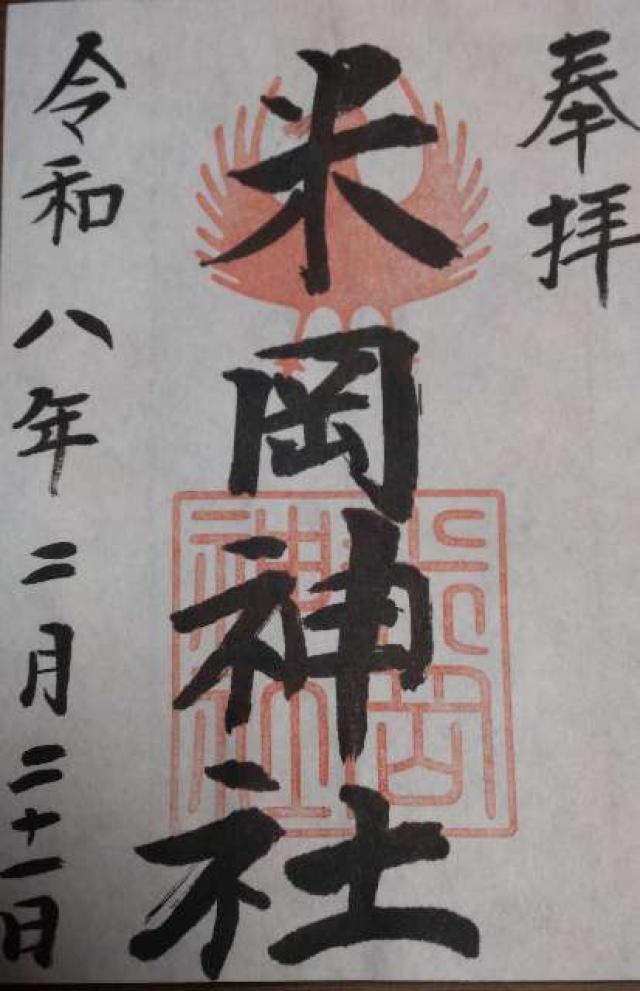 奉拝
米岡神社
令和八年二月二十一日